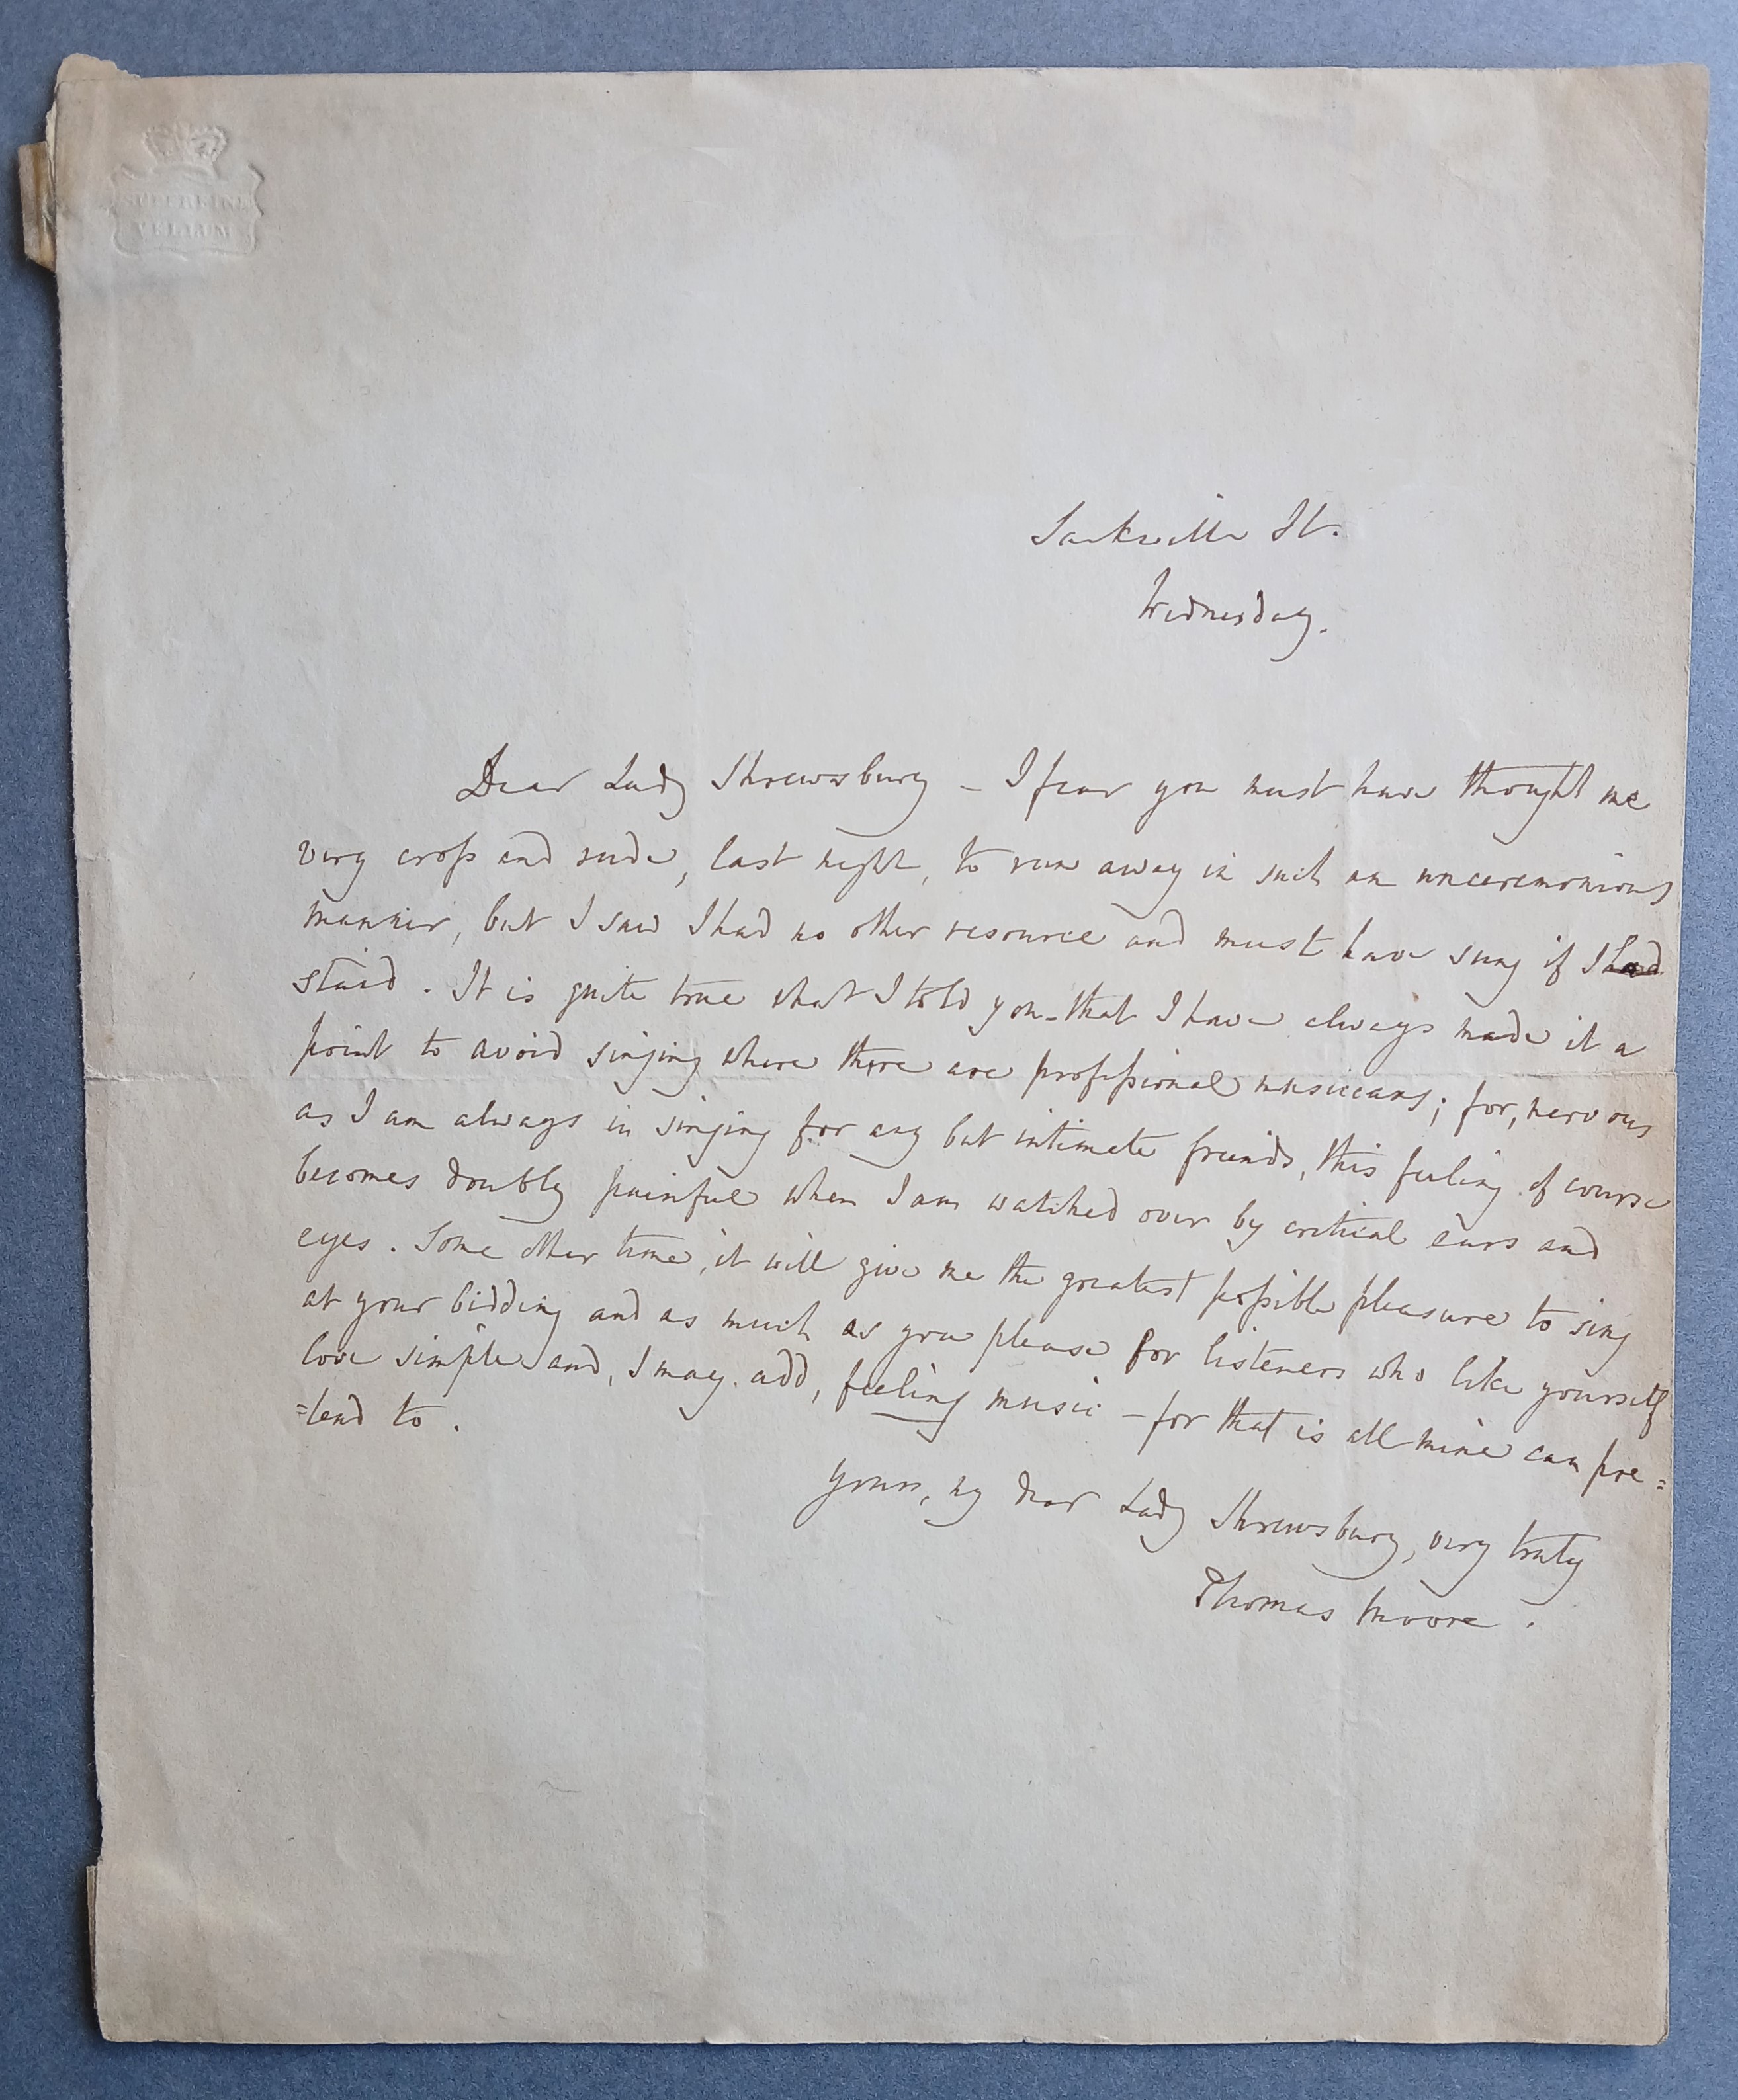 SUPERFINE
VELLUM
Sackville St.
Wednesday.
Dear Lady Shrewsbury – I fear you must have thought me
very cross and rude, last night, to run away in such an unceremonious
manner, but I saw I had no other resource and must have sung if I had
staid. It is quite true what I told you – that I have always made it a
point to avoid singing where there are professional musicians; for, nervous
as I am always in singing for any but intimate friends, this feeling of course
becomes doubly painful when I am watched over by critical ears and
eyes. Some other time, it will give me the greatest possible pleasure to sing
at your bidding and as much as you please for listeners who like yourself
love simple and, I may add, feeling music – for that is all mine can pre=
=tend to.
yours, my dear Lady Shrewsbury, very truly
Thomas Moore.